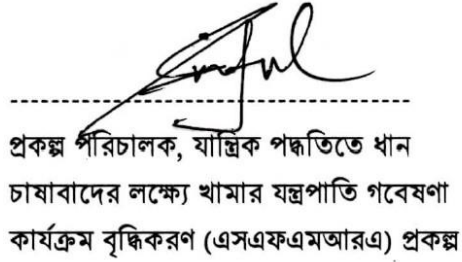 প্রকল্প পরিচালক, যান্ত্রিক পদ্ধতিতে ধান
চাষাবাদের লক্ষ্যে খামার যন্ত্রপাতি গবেষণা
কার্যক্রম বৃদ্ধিকরণ (এসএফএমআরএ) প্রকল্প